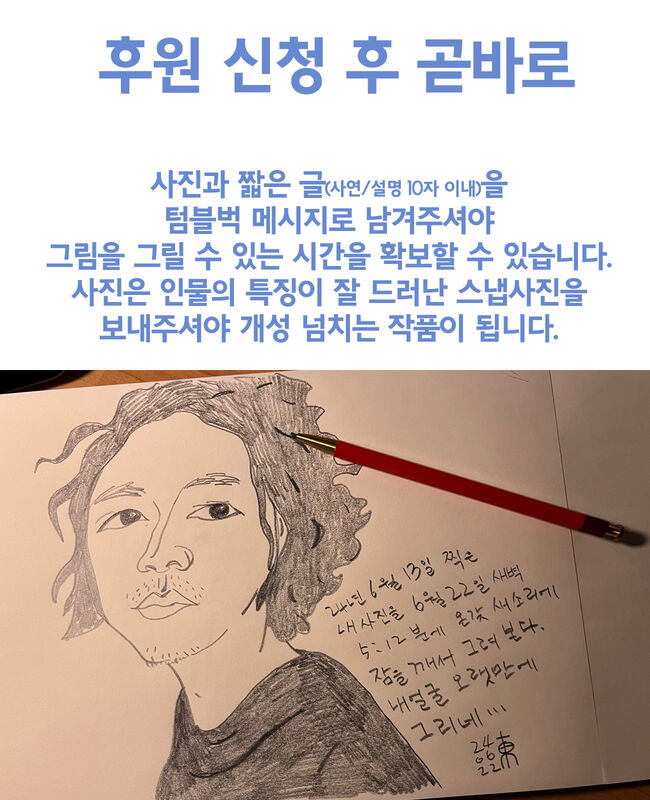 후원 신청 후 곧바로
사진과 짧은 글(사연/설명 10자 이내)을
텀블벅 메시지로 남겨주셔야
그림을 그릴 수 있는 시간을 확보할 수 있습니다.
사진은 인물의 특징이 잘 드러난 스냅사진을
보내주셔야 개성 넘치는 작품이 됩니다.
24년 6월 13일 찍은
내 사진을 6월 22일 새벽
5:12 분에 온갖 새소리에
잠을 깨서 그려 본다.
내얼굴 오랫만에
그리네 ...
24
06
22 東